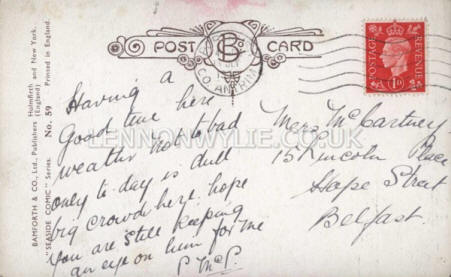 BAMFORTH & CO., Ltd., Publishers Holmfirth and New York.
(England) Printed in England.
"SEASIDE COMIC" Series. No. 59
POST CARD
CO ANTRIM
POSTAGE REVENUE
1D
LENNONWYLIE.CO.UK
Having a
Good time here
weather not to bad
only to-day is dull
big crowd here. hope
you are still keeping
an eye on him for me
P McC.
McCartney
15 Lincoln Place
Hope Street
Belfast.